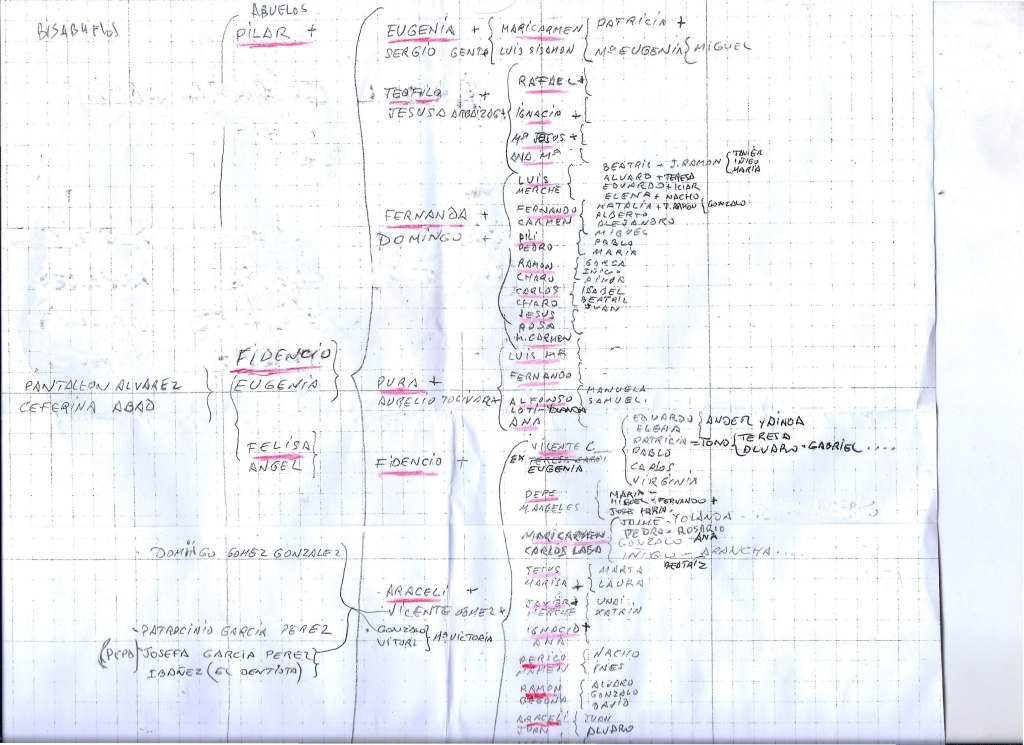 BISABUELOS
ABUELOS
PILAR +
FIDENCIO
EUGENIA
FELISA
ANGEL
PANTALEON ALVAREZ
CEFERINA ABAD
EUGENIA +
SERGIO GENTO
MARICARMEN
LUIS SISAMON
PATRICIA +
Mª EUGENIA { MIGUEL
TEOFILO +
JESUSA
RAFAEL +
IGNACIO +
Mª JESUS +
ANA Mª
FERNANDA +
DOMINGO +
LUIS
MERCHE
BEATRIZ - J. RAMON
JAVIER
IÑIGO
MARIA
ALVARO + TERESA
EDUARDO + ICIAR
ELENA + NACHO
FERNANDO
CARMEN
NATALIA + { GONZALO
ALBERTO
ALEJANDRO
PILI
PEDRO
MIGUEL
PABLO
MARIA
RAMON
CHARO
IÑIGO
AINOA
CARLOS
CHARO
ISABEL
BEATRIZ
JUAN
JESUS
ROSA
M. CARMEN
PURA +
AURELIO
LUIS Mª
FERNANDO
ALFONSO
LOTI-YOLANDA
MANUELA
SAMUEL
ANA
FIDENCIO +
ARACELI +
VICENTE GOMEZ +
VICENTE C
EX
EUGENIA
EDUARDO
ELENA
ANDER Y AINOA
PATRICIA = TOÑO
TERESA
ALVARO - GABRIEL ....
PABLO
CARLOS
VIRGINIA
PEPE
M. ANGELES
MARIA -
MIGUEL - FERNANDO +
JOSE MARIA -
MARICARMEN
CARLOS LASA
JAIME - YOLANDA
PEDRO - ROSARIO
GONZALO - ANA
IÑIGO - ARANCHA ...
BEATRIZ
JESUS
MARISA +
MARTA
LAURA
JAVIER +
MERCHE
UNAI
KATRIN
IGNACIO +
ANA
PERICO
MAMEN
NACHO
INES
RAMON
BEGOÑA
ALVARO
GONZALO
DAVID
ARACELI
JUAN
JUAN
ALVARO
- DOMINGO GOMEZ GONZALEZ
- PATROCINIO GARCIA PEREZ
(PEPA) JOSEFA GARCIA PEREZ
IBAÑEZ (EL DENTISTA)
- GONZALO
VITORI } Mª VICTORIA